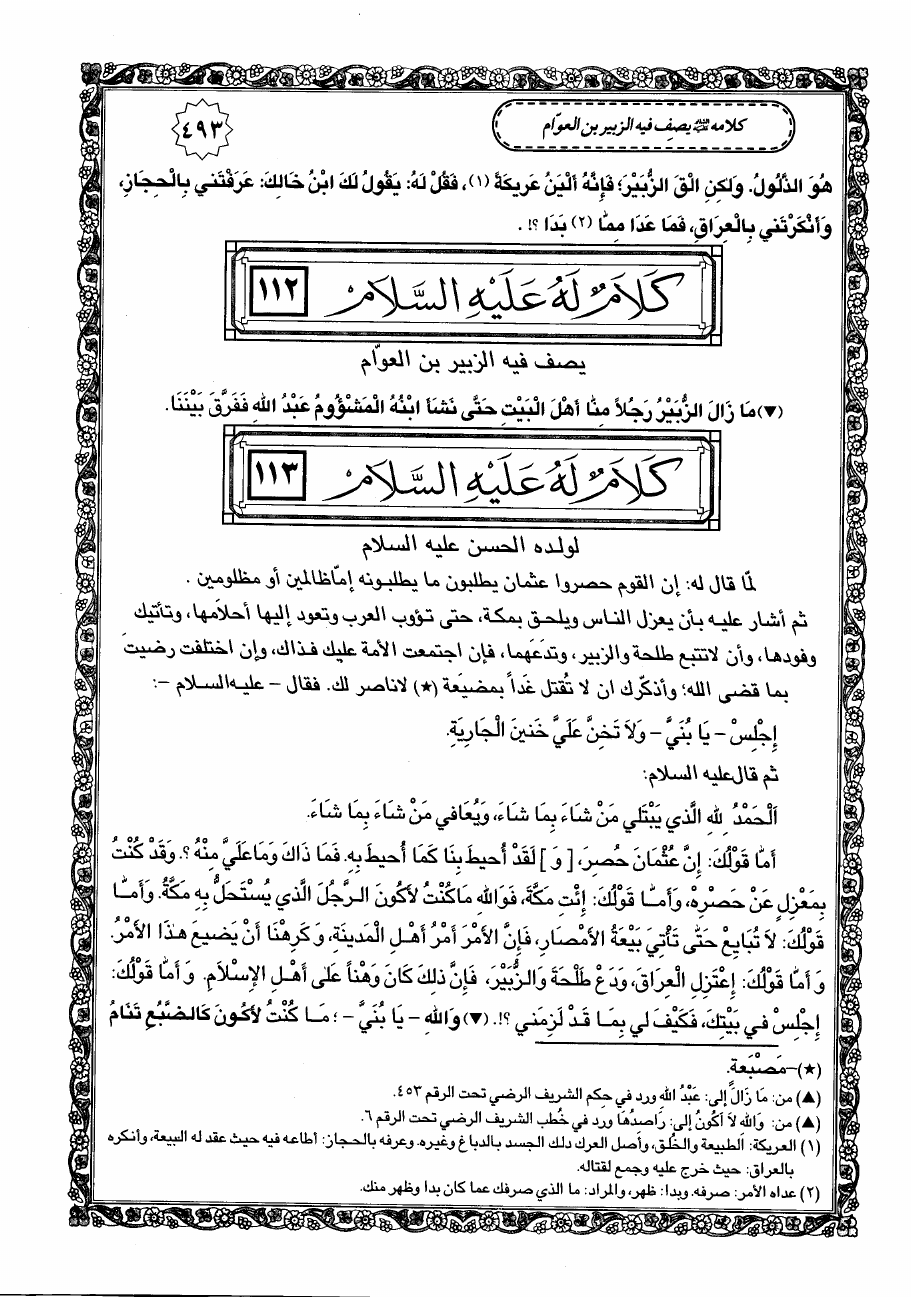 كلامه عليه السلام يصف فيه الزبير بن العوّام
٤٩٣
هُوَ الذَّلُولُ. وَلكِنِ الْقَ الزُّبَيْرَ؛ فَإِنَّهُ أَلْيَنُ عَرِيكَةً (١)، فَقُلْ لَهُ: يَقُولُ لَكَ ابْنُ خَالِكَ: عَرَفْتَني بِالْحِجَازِ،
وَأَنْكَرْتَني بِالْعِرَاقِ، فَمَا عَدَا مِمَّا (٢) بَدَا ؟! .
كَلَامٌ لَهُ عَلَيْهِ السَّلَامُ
١١٢
يصف فيه الزبير بن العوّام
(▼) مَا زَالَ الزُّبَيْرُ رَجُلاً مِنَّا أَهْلَ الْبَيْتِ حَتَّى نَشَأَ ابْنُهُ الْمَشْؤُومُ عَبْدُ اللهِ فَفَرَّقَ بَيْنَنَا.
كَلَامٌ لَهُ عَلَيْهِ السَّلَامُ
١١٣
لولده الحسن عليه السلام
لمّا قال له: إن القوم حصروا عثمان يطلبون ما يطلبونه إمّا ظالمين أو مظلومين .
ثم أشار عليه بأن يعزل الناس ويلحق بمكة، حتى تؤوب العرب وتعود إليها أحلامها، وتأتيك
وفودها، وأن لا تتبع طلحة والزبير، وتدعَهما، فإن اجتمعت الأمة عليك فذاك، وإن اختلفت رضيتَ
بما قضى الله؛ وأذكّرك ان لا تُقتل غَداً بمضيَعة (★) لا ناصر لك. فقال – عليه السلام –:
إِجْلِسْ – يَا بُنَيَّ – وَلَا تَخِنَّ عَلَيَّ خَنينَ الْجَارِيَةِ.
ثم قال عليه السلام:
اَلْحَمْدُ للهِ الَّذي يَبْتَلي مَنْ شَاءَ بِمَا شَاءَ، وَيُعَافي مَنْ شَاءَ بِمَا شَاءَ.
أَمَّا قَوْلُكَ: إِنَّ عُثْمَانَ حُصِرَ، [ وَ ] لَقَدْ أُحيطَ بِنَا كَمَا أُحيطَ بِهِ. فَمَا ذَاكَ وَمَا عَلَيَّ مِنْهُ ؟. وَقَدْ كُنْتُ
بِمَعْزِلٍ عَنْ حَصْرِهِ، وَأَمَّا قَوْلُكَ: إِئْتِ مَكَّةَ، فَوَاللهِ مَا كُنْتُ لأَكُونَ الرَّجُلَ الَّذي يُسْتَحَلُّ بِهِ مَكَّةُ. وَأَمَّا
قَوْلُكَ: لاَ تُبَايِعْ حَتَّى تَأْتِيَ بَيْعَةُ الأَمْصَارِ، فَإِنَّ الأَمْرَ أَمْرُ أَهْلِ الْمَدينَةِ، وَكَرِهْنَا أَنْ يَضيعَ هذَا الأَمْرُ.
وَ أَمَّا قَوْلُكَ: إِعْتَزِلِ الْعِرَاقَ، وَدَعْ طَلْحَةَ وَالزُّبَيْرَ، فَإِنَّ ذلِكَ كَانَ وَهْناً عَلى أَهْلِ الإِسْلاَمِ. وَ أَمَّا قَوْلُكَ:
إِجْلِسْ في بَيْتِكَ، فَكَيْفَ لي بِمَا قَدْ لَزِمَني ؟!. (▼) وَاللهِ – يَا بُنَيَّ – ؛ مَا كُنْتُ لأَكُونَ كَالضَّبُعِ تَنَامُ
(★)–مَصْبَعة.
(▲) من: مَا زَالَ إلى: عَبْدُ الله ورد في حِكم الشريف الرضي تحت الرقم ٤٥٣.
(▲) من: وَاللهِ لاَ أكُونُ إلى: رَاصِدُهَا ورد في خُطب الشريف الرضي تحت الرقم ٦.
(١) العريكة: الطبيعة والخُلق، وأصل العرك دلك الجسد بالدباغ وغيره. وعرفه بالحجاز: أطاعه فيه حيث عقد له البيعة، وأنكره
بالعراق: حيث خرج عليه وجمع لقتاله.
(٢) عداه الأمر: صرفه. وبدا: ظهر، والمراد: ما الذي صرفك عما كان بدا وظهر منك.